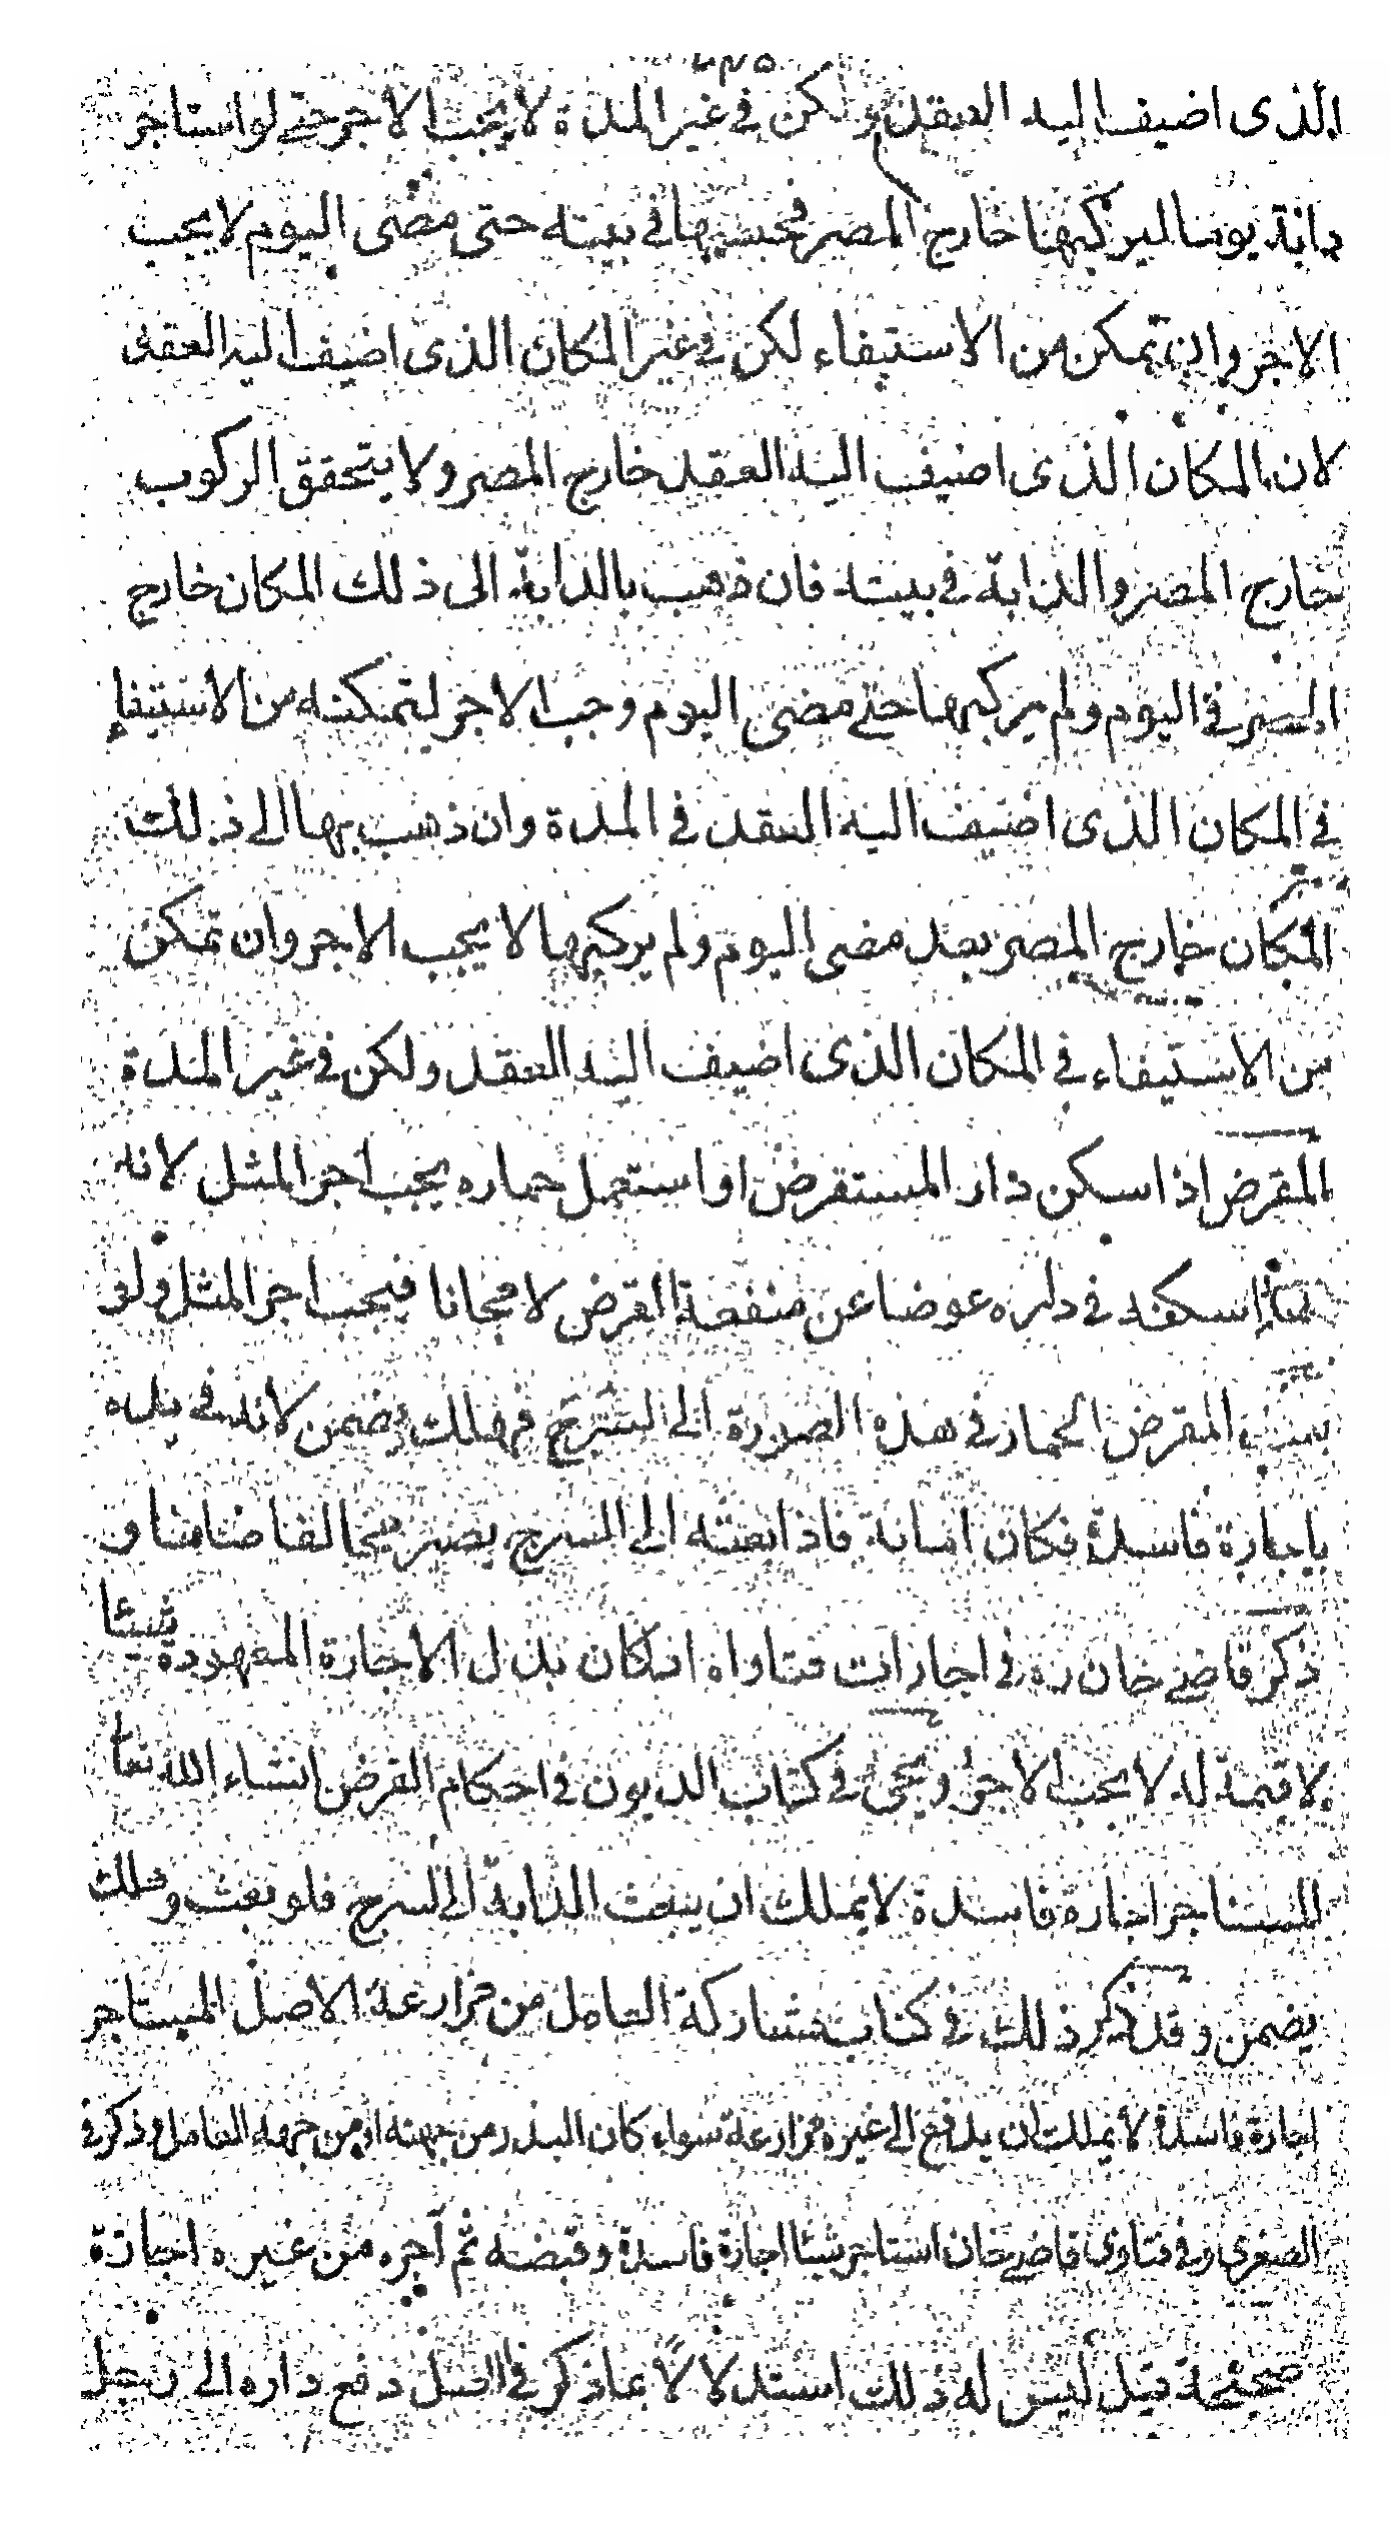 ٤٣٥
الذى اضيف اليه العقد ولكن فى غير المدة لا يجب الاجر حتى لو استاجر
دابة يوما ليركبها خارج المصر فحبسها فى بيته حتى مضى اليوم لا يجب
الاجر وان تمكن من الاستيفاء لكن فى غير المكان الذى اضيف اليه العقد
لان المكان الذى اضيف اليه العقد خارج المصر ولا يتحقق الركوب
خارج المصر والدابة فى بيته فان ذهب بالدابة الى ذلك المكان خارج
المصر فى اليوم ولم يركبها حتى مضى اليوم وجب الاجر لتمكنه من الاستيفاء
فى المكان الذى اضيف اليه العقد فى المدة وان ذهب بها الى ذلك
المكان خارج المصر بعد مضى اليوم ولم يركبها لا يجب الاجر وان تمكن
من الاستيفاء فى المكان الذى اضيف اليه العقد ولكن فى غير المدة
المقرض اذا سكن دار المستقرض او استعمل حماره يجب اجر المثل لانه
انما اسكنه فى داره عوضا عن منفعة القرض لا مجانا فيجب اجر المثل ولو
المقرض الحمار فى هذه الصورة الى السرح فهلك يضمن لانه فى يده
باجارة فاسدة فكان امانة فاذا بعثه الى السرح يصير مخالفا ضامنا و
ذكر قاضى خان ره فى اجارات فتاواه ان كان بدل الاجارة المعهودة شيئا
لا قيمة له لا يجب الاجر ويجئ فى كتاب الديون فى احكام القرض انشاء الله تعا
المستاجر اجارة فاسدة لا يملك ان يبعث الدابة الى السرح فلو بعث وهلك
يضمن وقد ذكر ذلك فى كتاب مشاركة العامل من مزارعة الاصل المستاجر
اجارة فاسدة لا يملك ان يدفع الى غيره مزارعة سواء كان البذر من جهته او من جهة العامل وذكر فى
الصغرى وفى فتاوى قاضى خان استاجر شيئا اجارة فاسدة وقبضه ثم آجره من غيره اجازة
صحيحة قيل ليس له ذلك استدلالا بما ذكر فى الاصل دفع داره الى رجل